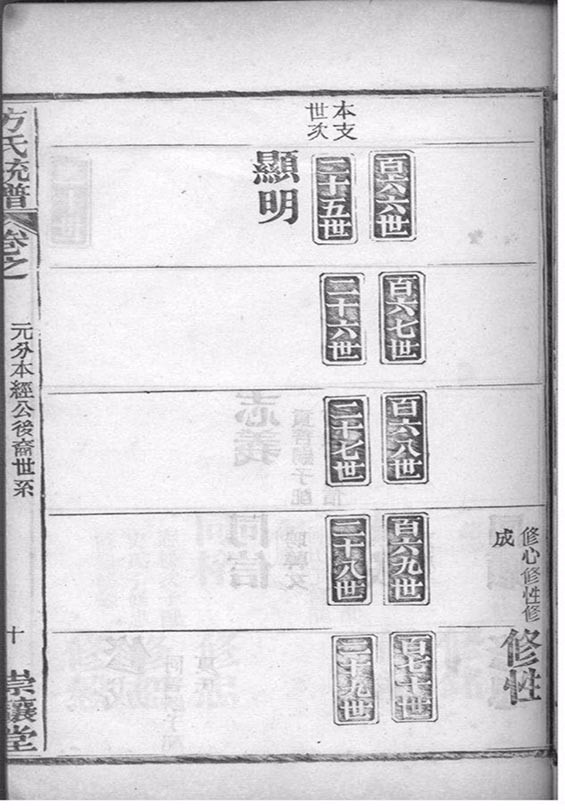 修心修性修
成
修性
本支
世次
百六六世
二十五世
顯明
百六七世
二十六世
百六八世
二十七世
百六九世
二十八世
百七十世
二十九世
方氏統譜
卷之
元分本經公後裔世系
十
崇讓堂